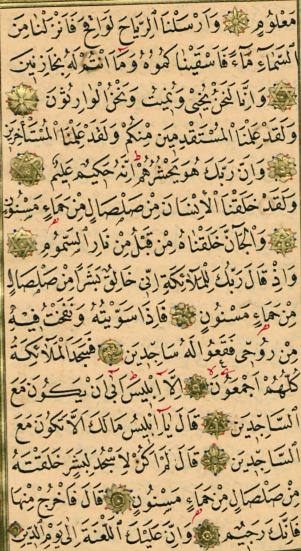 مَعْلُومٍ وَاَرْسَلْنَا الرِّيَاحَ لَوَاقِحَ فَاَنْزَلْنَا مِنَ
السَّمَاءِ مَاءً فَاَسْقَيْنَاكُمُوهُ وَمَا اَنْتُمْ لَهُ بِخَازِنِينَ
وَاِنَّا لَنَحْنُ نُحْيِي وَنُمِيتُ وَنَحْنُ الْوَارِثُونَ
وَلَقَدْ عَلِمْنَا الْمُسْتَقْدِمِينَ مِنْكُمْ وَلَقَدْ عَلِمْنَا الْمُسْتَأْخِرِينَ
وَاِنَّ رَبَّكَ هُوَ يَحْشُرُهُمْ اِنَّهُ حَكِيمٌ عَلِيمٌ
وَلَقَدْ خَلَقْنَا الْاِنْسَانَ مِنْ صَلْصَالٍ مِنْ حَمَاٍ مَسْنُونٍ
وَالْجَانَّ خَلَقْنَاهُ مِنْ قَبْلُ مِنْ نَارِ السَّمُومِ
وَاِذْ قَالَ رَبُّكَ لِلْمَلَائِكَةِ اِنِّي خَالِقٌ بَشَرًا مِنْ صَلْصَالٍ
مِنْ حَمَاٍ مَسْنُونٍ فَاِذَا سَوَّيْتُهُ وَنَفَخْتُ فِيهِ
مِنْ رُوحِي فَقَعُوا لَهُ سَاجِدِينَ فَسَجَدَ الْمَلَائِكَةُ
كُلُّهُمْ اَجْمَعُونَ اِلَّا اِبْلِيسَ اَبَى اَنْ يَكُونَ مَعَ
السَّاجِدِينَ قَالَ يَا اِبْلِيسُ مَا لَكَ اَلَّا تَكُونَ مَعَ
السَّاجِدِينَ قَالَ لَمْ اَكُنْ لِاَسْجُدَ لِبَشَرٍ خَلَقْتَهُ
مِنْ صَلْصَالٍ مِنْ حَمَاٍ مَسْنُونٍ قَالَ فَاخْرُجْ مِنْهَا
فَاِنَّكَ رَجِيمٌ وَاِنَّ عَلَيْكَ اللَّعْنَةَ اِلَى يَوْمِ الدِّينِ